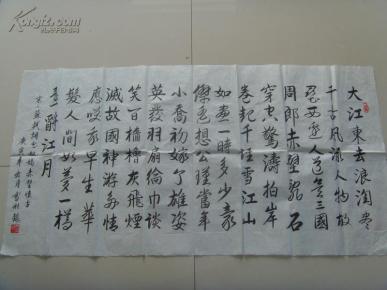 大江東去浪淘盡
千古風流人物故
壘西邊人道是三國
周郎赤壁亂石
穿空驚濤拍岸
卷起千堆雪江山
如畫一時多少豪
傑遙想公瑾當年
小喬初嫁了雄姿
英發羽扇綸巾談
笑間檣櫓灰飛煙
滅故國神游多情
應笑我早生華
髮人間如夢一樽
還酹江月